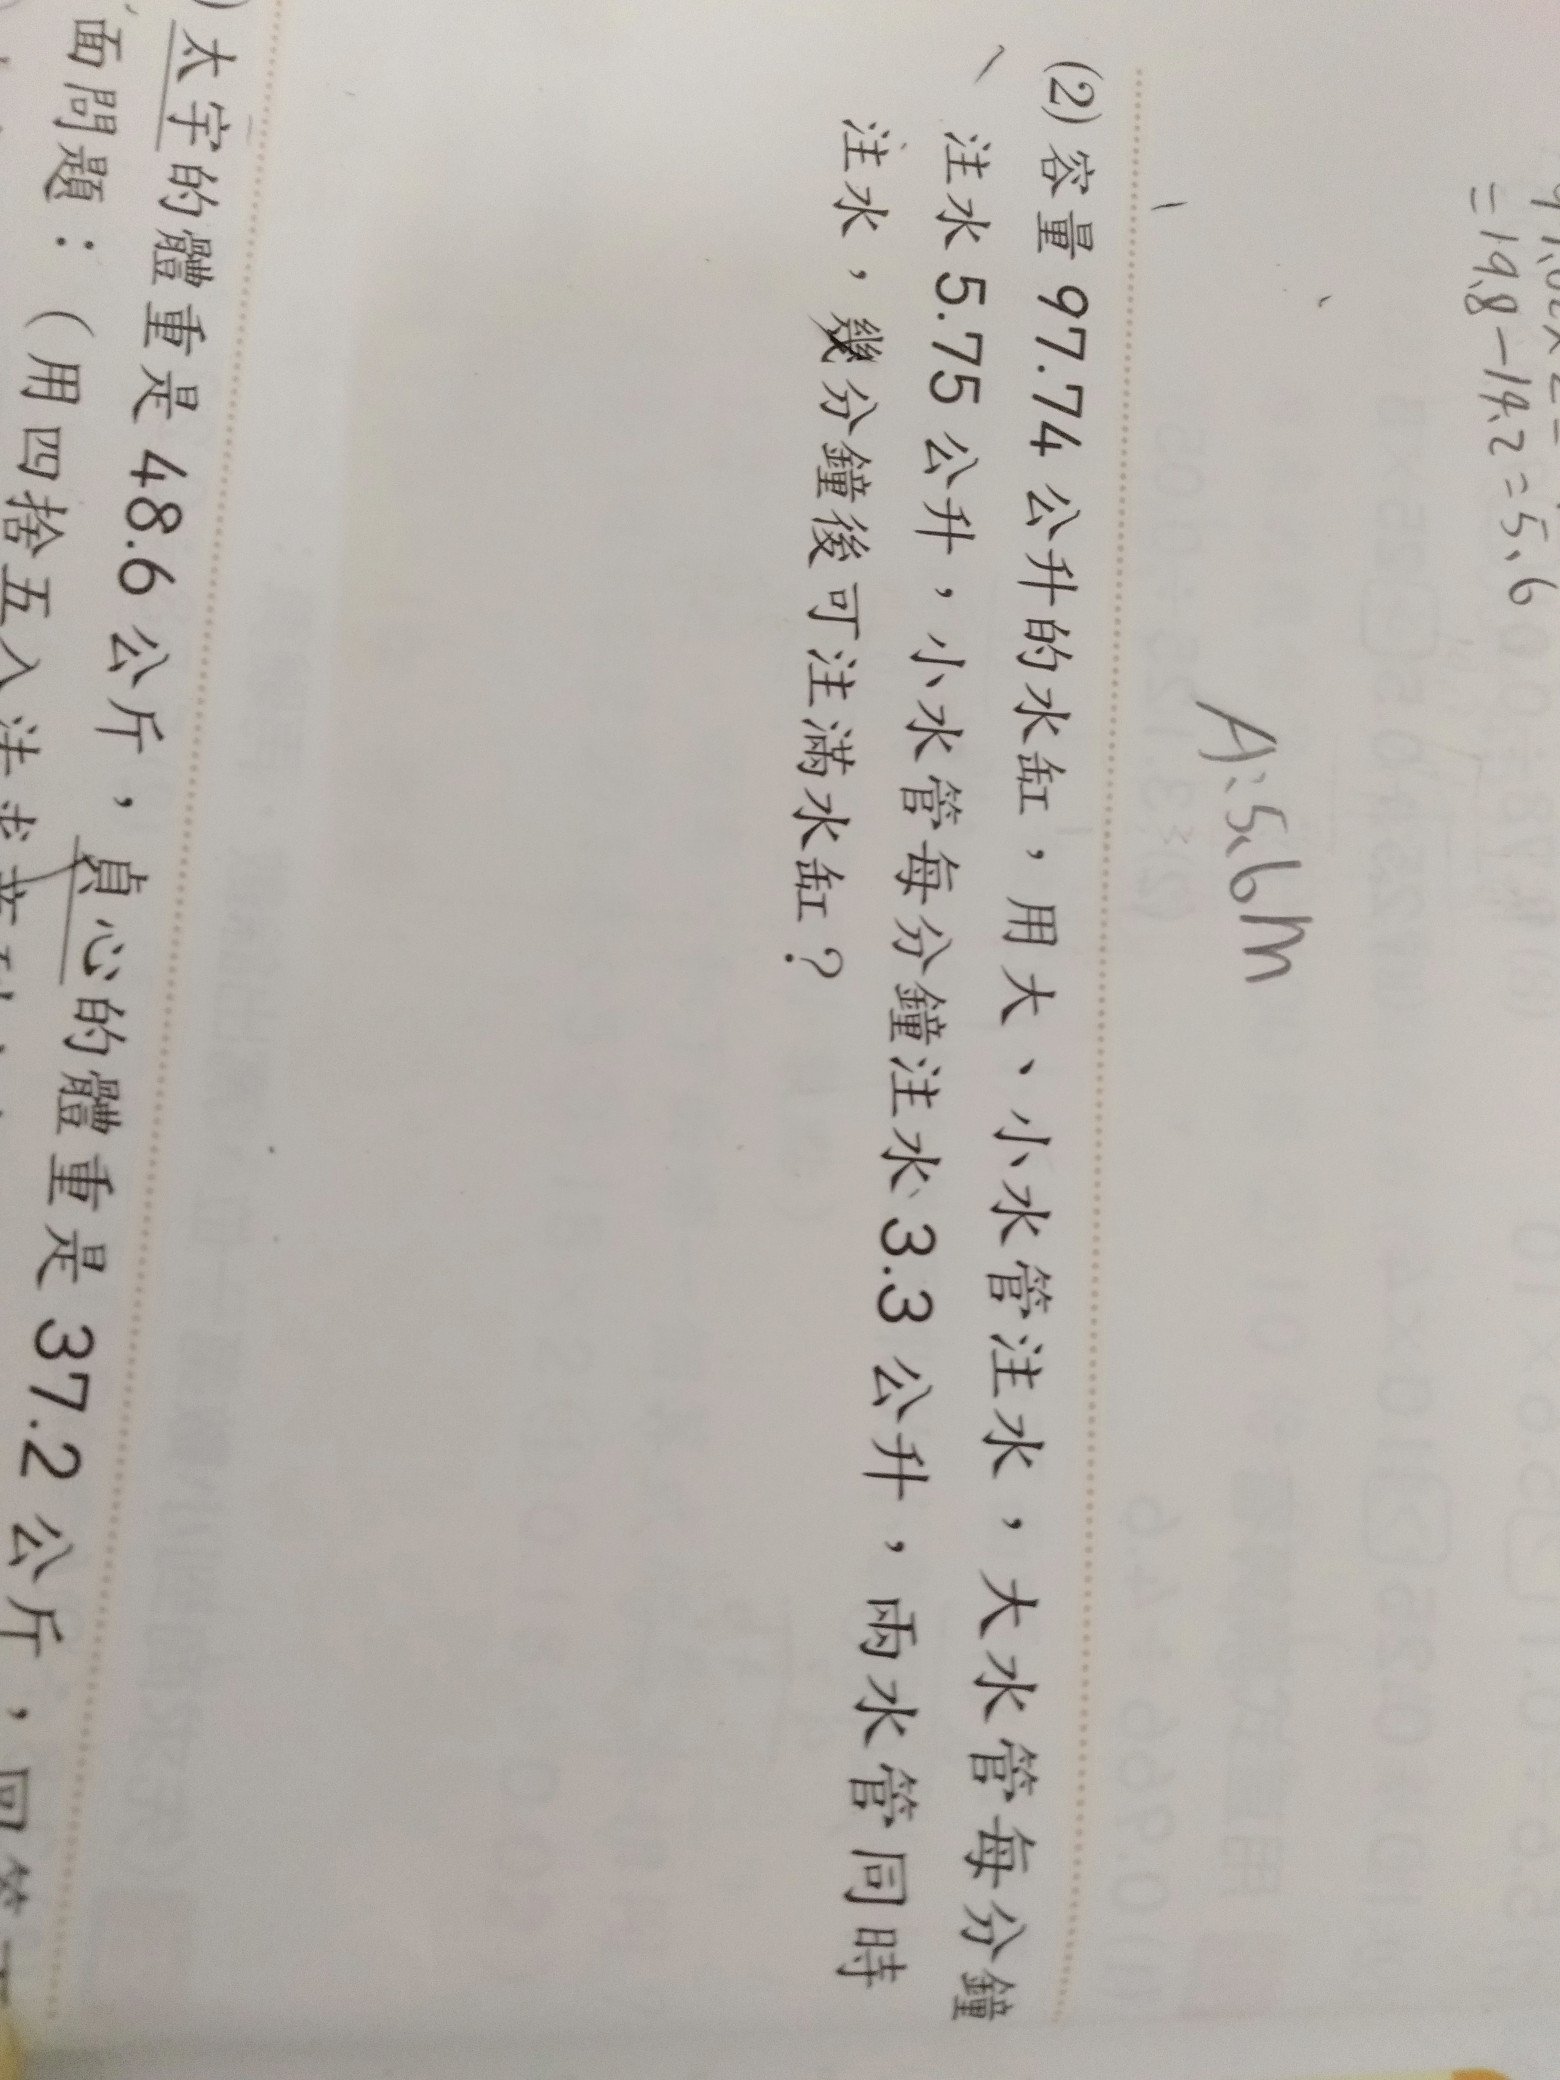 =19.8-14.2=5.6
A:5.6m
(2)容量 97.74 公升的水缸，用大、小水管注水，大水管每分鐘
注水 5.75 公升，小水管每分鐘注水 3.3 公升，兩水管同時
注水，幾分鐘後可注滿水缸？
太宇的體重是 48.6 公斤，貞心的體重是 37.2 公斤，回答下
面問題：（用四捨五入法求